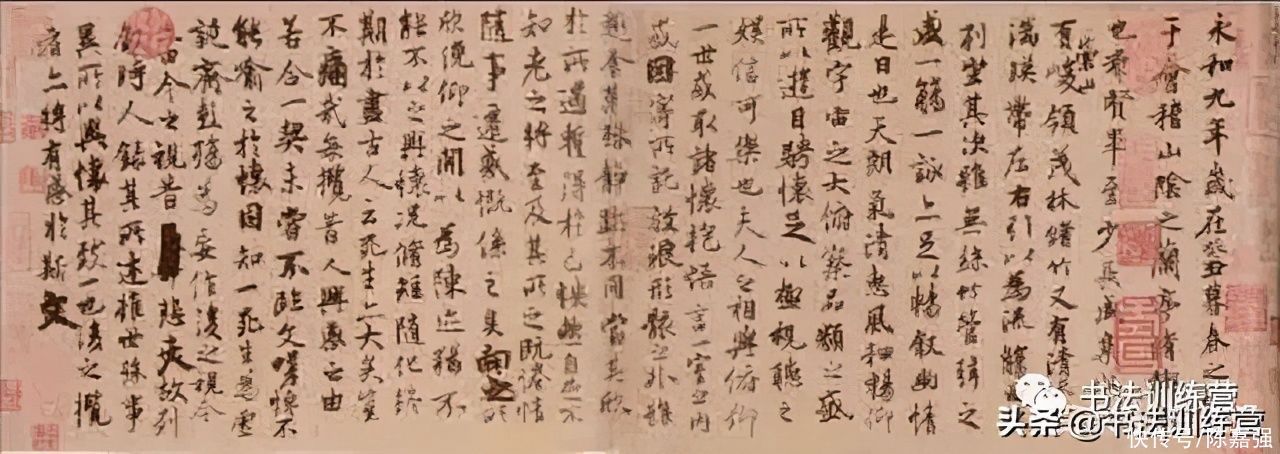 永和九年歲在癸丑暮春之
于會稽山陰之蘭亭脩
也羣賢畢至少長咸集
有崇山峻領茂林脩竹又有清流
湍暎帶左右引以為流觴
列坐其次雖無絲竹管弦之
盛一觴一詠亦足以暢敘幽情
是日也天朗氣清惠風和暢仰
觀宇宙之大俯察品類之盛
所以遊目騁懷足以極視聽之
娛信可樂也夫人之相與俯仰
一世或取諸懷抱悟言一室之內
或因寄所託放浪形骸之外雖
趣舍萬殊靜躁不同當其欣
於所遇蹔得於己怏然自足不
知老之將至及其所之既惓情
隨事遷感慨係之矣向之所
欣俛仰之閒以為陳迹猶不
能不以之興懷況脩短隨化終
期於盡古人云死生亦大矣豈
不痛哉每攬昔人興感之由
若合一契未嘗不臨文嗟悼不
能喻之於懷固知一死生為虛
誕齊彭殤為妄作後之視今
亦由今之視昔悲夫故列
敘時人錄其所述雖世殊事
異所以興懷其致一也後之攬
者亦將有感於斯文
书法训练营
头条@书法训练营
快传号/陈嘉强